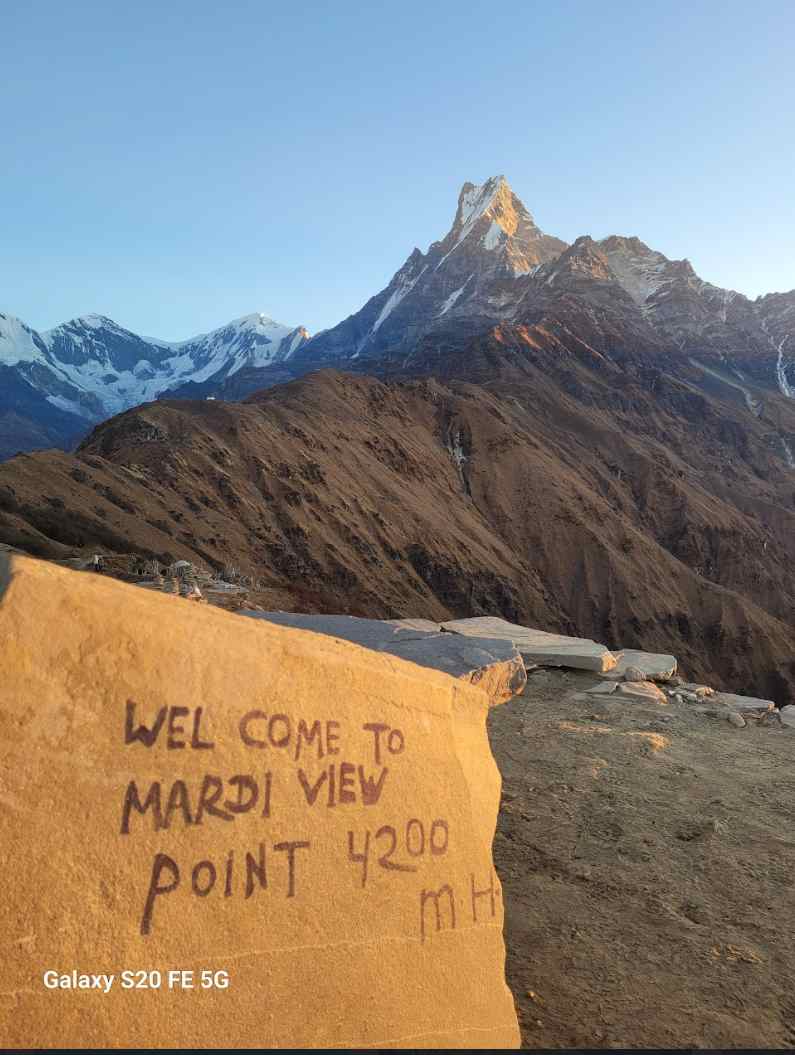 WEL COME TO
MARDI VIEW
POINT 4200
m.H.
Galaxy S20 FE 5G